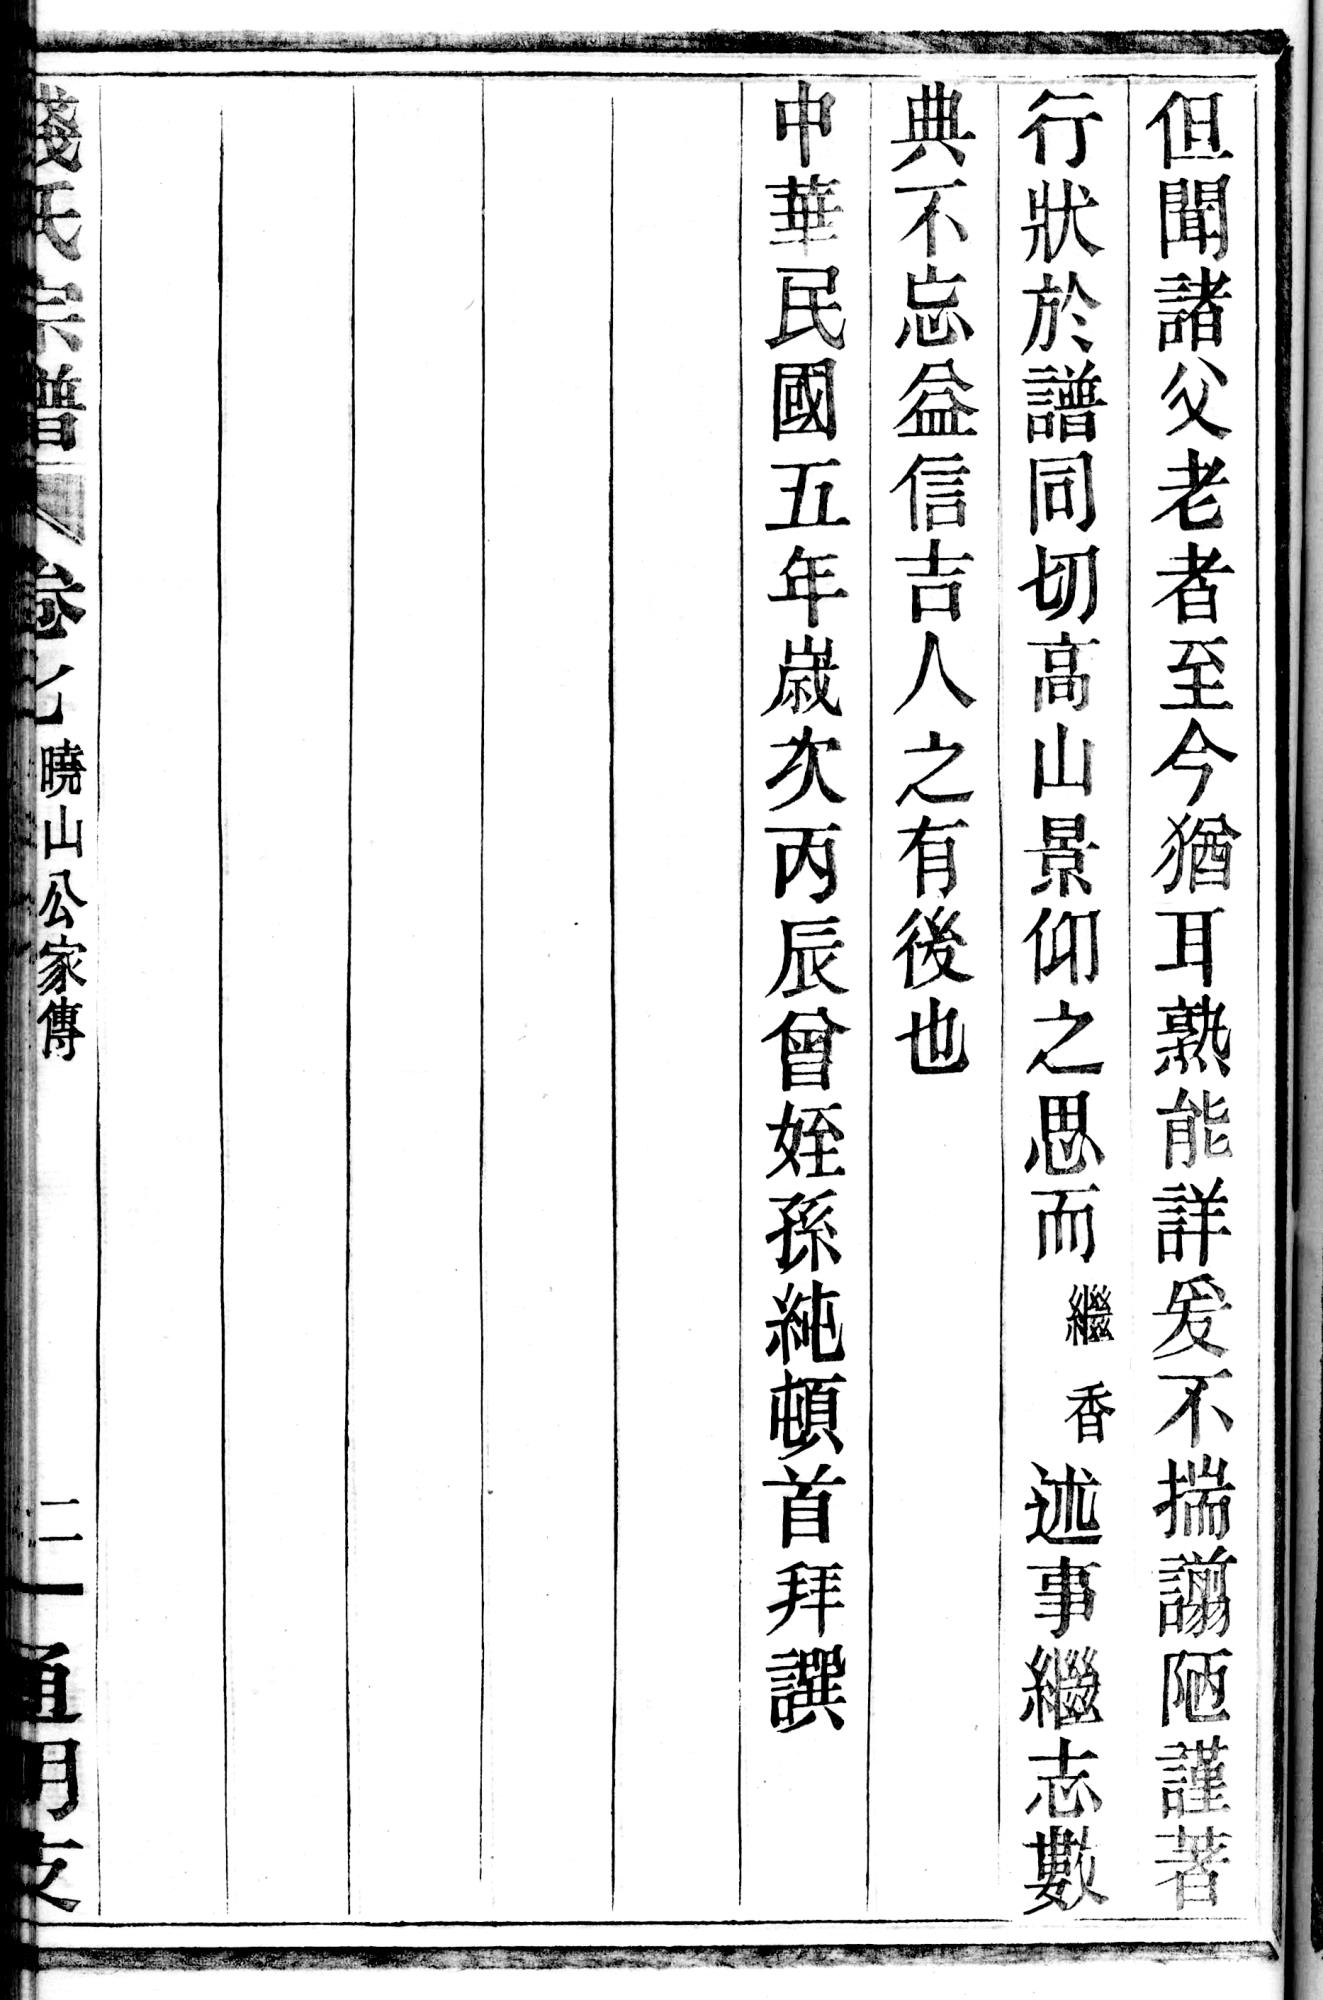 但聞諸父老者至今猶耳熟能詳爰不揣譾陋謹著
行狀於譜同切高山景仰之思而繼香述事繼志數
典不忘益信吉人之有後也
中華民國五年歲次丙辰曾姪孫純頓首拜譔
錢氏宗譜 卷七 曉山公家傳 二 通明支